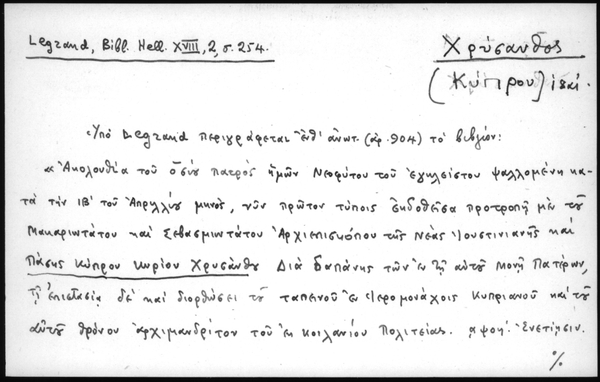 Legrand, Bibl. Hell. XVIII, 2, σ. 254.
Χρύσανθος
(Κύπρου) ιβαί.
Ὑπὸ Legrand περιγράφεται ἔνθ' ἀνωτ. (ἀρ. 904) τὸ βιβλίον:
« Ἀκολουθία τοῦ ὁσίου πατρὸς ἡμῶν Νεοφύτου τοῦ ἐγκλείστου ψαλλομένη κα-
τὰ τὴν ΙΒ' τοῦ Ἀπριλλίου μηνὸς, νῦν πρῶτον τύποις ἐκδοθεῖσα προτροπῇ μὲν τοῦ
Μακαριωτάτου καὶ Σεβασμιωτάτου Ἀρχιεπισκόπου τῆς Νέας Ἰουστινιανῆς καὶ
Πάσης Κύπρου Κυρίου Χρυσάνθου Διὰ δαπάνης τῶν ἐν τῇ αὐτοῦ Μονῇ Πατέρων,
τῇ ἐπιστασίᾳ δὲ καὶ διορθώσει τοῦ ταπεινοῦ ἐν Ἱερομονάχοις Κυπριανοῦ καὶ τοῦ
αὐτοῦ θρόνου ἀρχιμανδρίτου τοῦ ἐκ Κοιλανίου Πολιτείας. ͵αψοη'. Ἐνετίῃσιν.
%